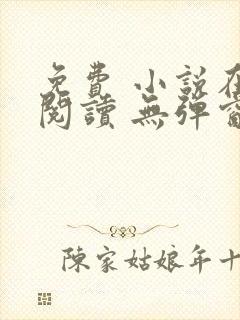 免費 小說在
閱讀 無彈窗
陳家姑娘年十